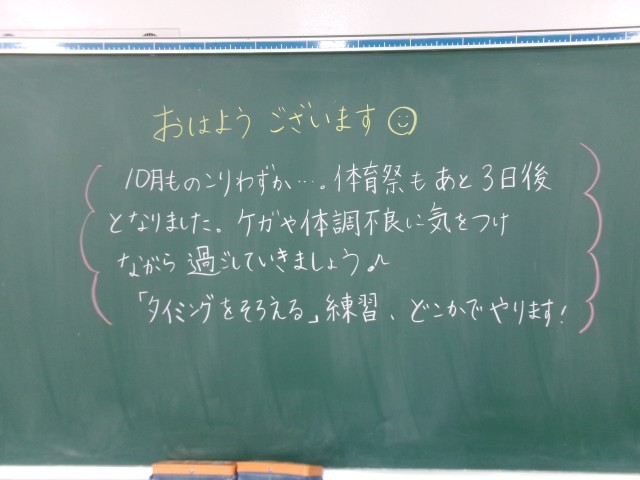 おはようございます☺
10月ものこりわずか…。体育祭もあと3日後
となりました。ケガや体調不良に気をつけ
ながら過ごしていきましょう♪
「タイミングをそろえる」練習、どこかでやります!